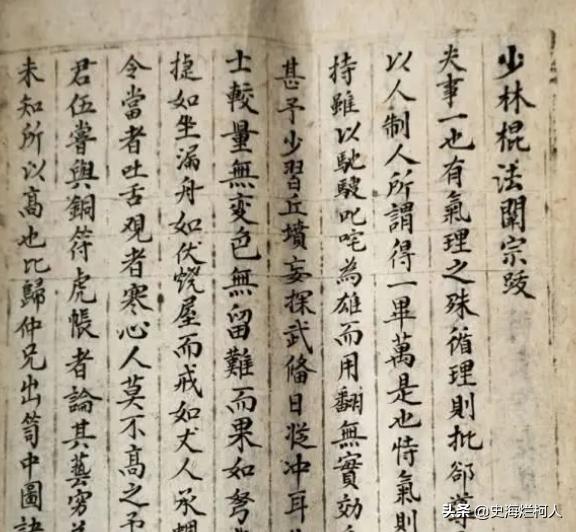 少林棍法闡宗跋
夫事一也有氣理之殊循理則批郤
以人制人所謂得一畢萬是也恃氣則
持雖以馳驟叱咤為雄而用翻無實効
甚予少習丘墳妄探武俻日從冲耳
士較量無变色無留難而果如弩
捷如坐漏舟如伏燒屋而戒如犬人承蜩
令當者吐舌观者寒心人莫不高之予
君伍睿與銅符虎帳者論其藝穷
未知所以高也比歸仲兄出笥中圖訣
头条 @史海烂柯人